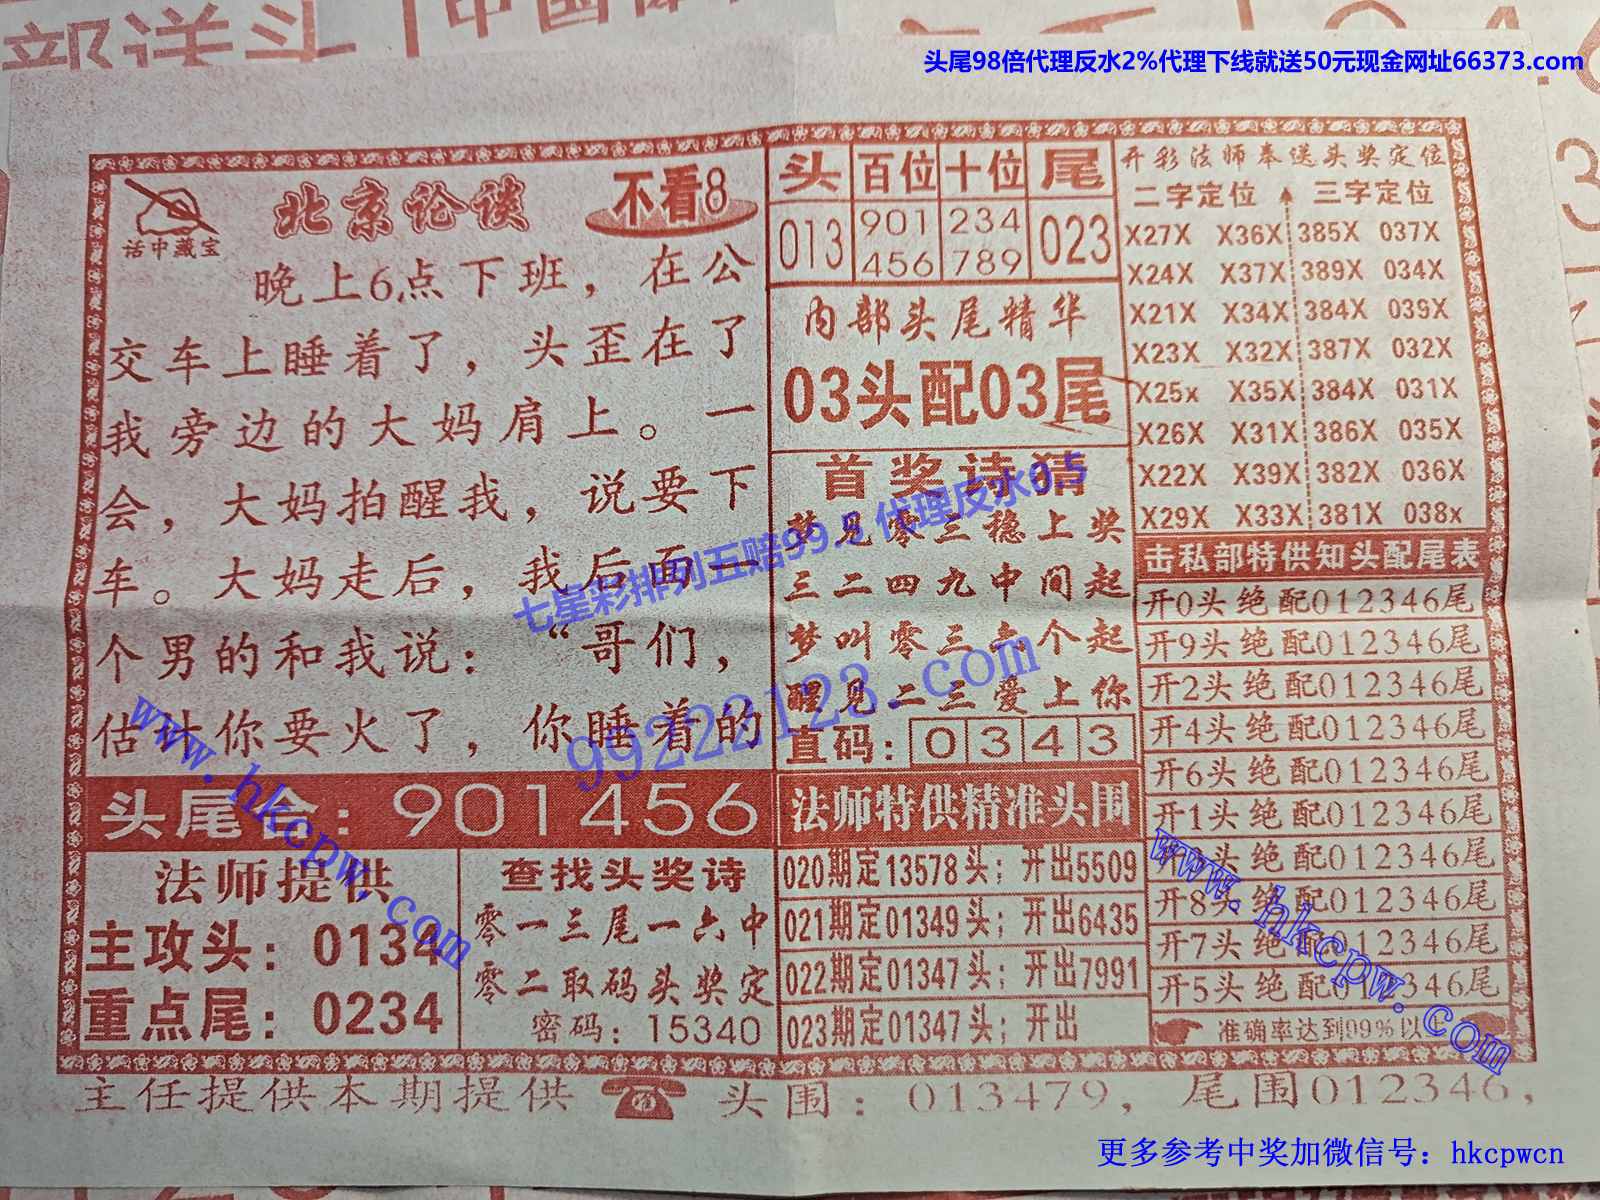 部送头
中国体
头尾98倍代理反水2%代理下线就送50元现金网址66373.com
话中藏宝
北京论谈
不看8
晚上6点下班，在公
交车上睡着了，头歪在了
我旁边的大妈肩上。一
会，大妈拍醒我，说要下
车。大妈走后，我后面一
个男的和我说：“哥们，
估计你要火了，你睡着的
头尾合：901456
法师提供
主攻头：0134
重点尾：0234
查找头奖诗
零一三尾一六中
零二取码头奖定
密码：15340
头 百位 十位 尾
013 901 234 023
456 789
内部头尾精华
03头配03尾
首奖诗猜
梦见零三稳上奖
三二四九中间起
梦叫零三六个起
醒见二三爱上你
直码：0 3 4 3
法师特供精准头围
020期定13578头；开出5509
021期定01349头；开出6435
022期定01347头；开出7991
023期定01347头；开出
开彩法师奉送头奖定位
二字定位 三字定位
X27X X36X 385X 037X
X24X X37X 389X 034X
X21X X34X 384X 039X
X23X X32X 387X 032X
X25x X35X 384X 031X
X26X X31X 386X 035X
X22X X39X 382X 036X
X29X X33X 381X 038x
击私部特供知头配尾表
开0头绝配012346尾
开9头绝配012346尾
开2头绝配012346尾
开4头绝配012346尾
开6头绝配012346尾
开1头绝配012346尾
开3头绝配012346尾
开8头绝配012346尾
开7头绝配012346尾
开5头绝配012346尾
准确率达到99%以上
主任提供本期提供 头围：013479，尾围012346，
七星彩排列五赔99.5 代理反水0.5
99222123.com
www.hkcpw.com
www.hkcpw.com
更多参考中奖加微信号：hkcpwcn